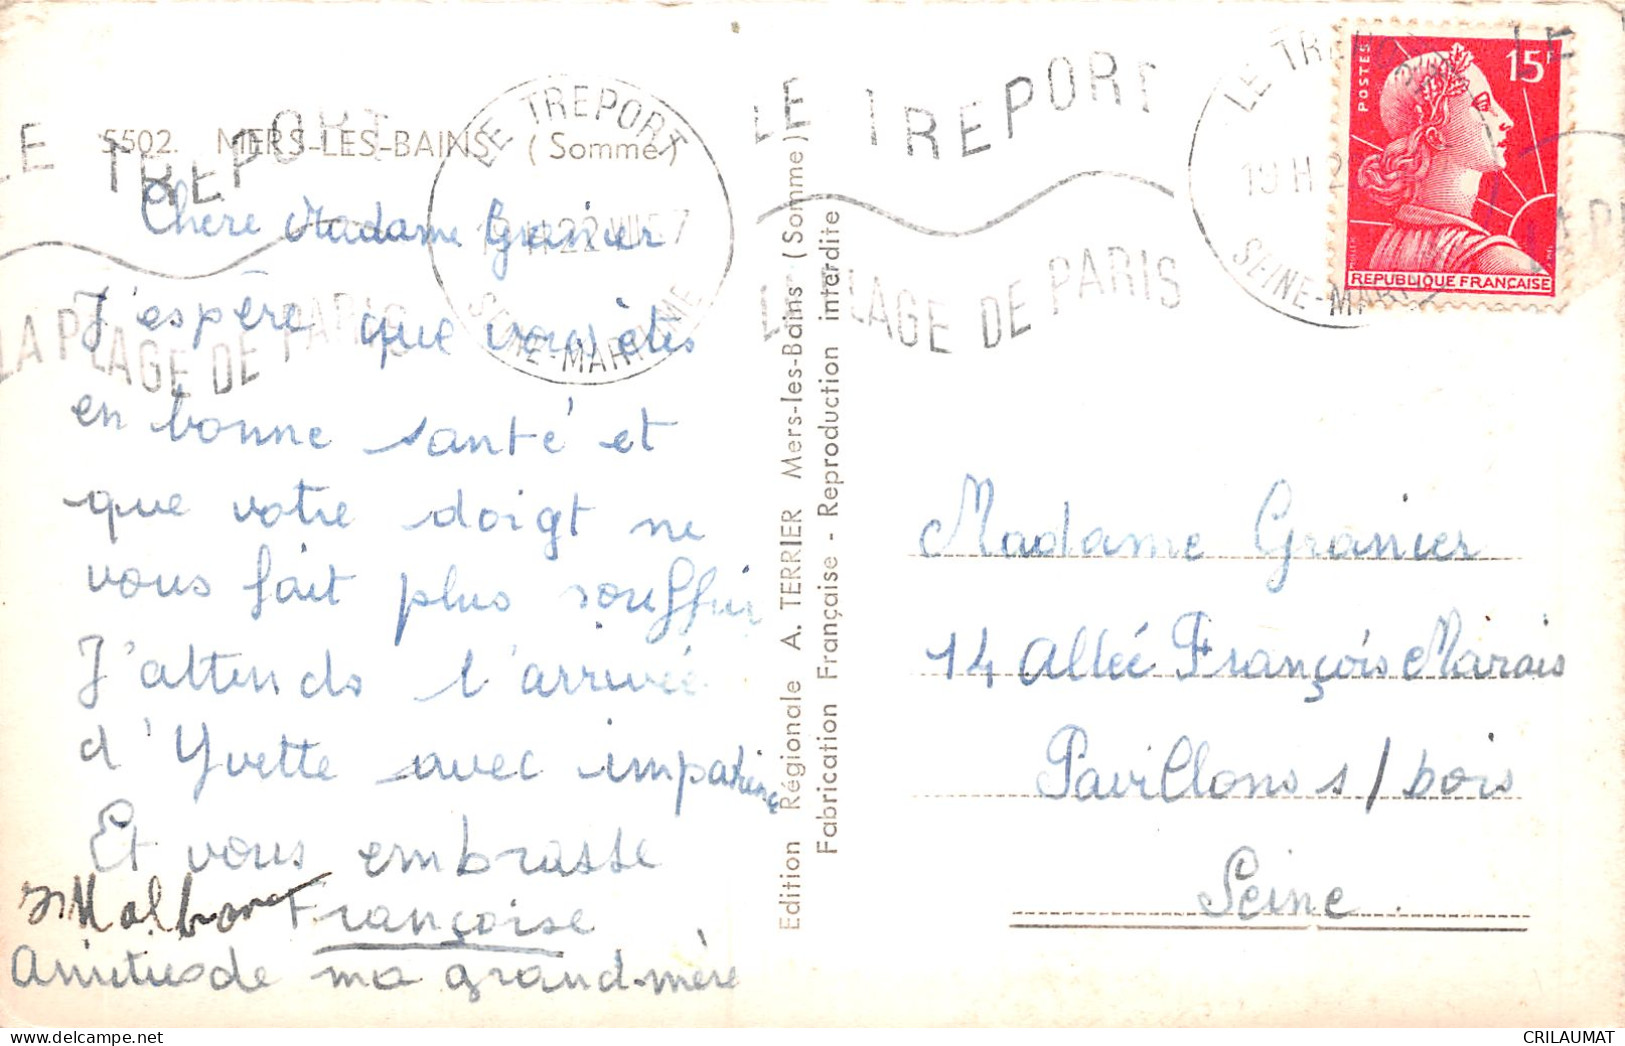 5502. MERS-LES-BAINS (Somme)
LE TREPORT
LA PLAGE DE PARIS
LE TREPORT
19 H 22 VII 57
SEINE-MARITIME
LE TREPORT
LA PLAGE DE PARIS
LE TR
19 H 2
SEINE-MARI
POSTES
15F
REPUBLIQUE FRANÇAISE
Chère Madame Granier
J'espère que vous êtes
en bonne santé et
que votre doigt ne
vous fait plus souffrir
J'attends l'arrivée
d'Yvette avec impatience
Et vous embrasse
Françoise
Amitiés de ma grand-mère
Edition Régionale A. TERRIER Mers-les-Bains (Somme)
Fabrication Française - Reproduction interdite
Madame Granier
14 Allée François Marais
Pavillons s/ bois
Seine.
CRILAUMAT